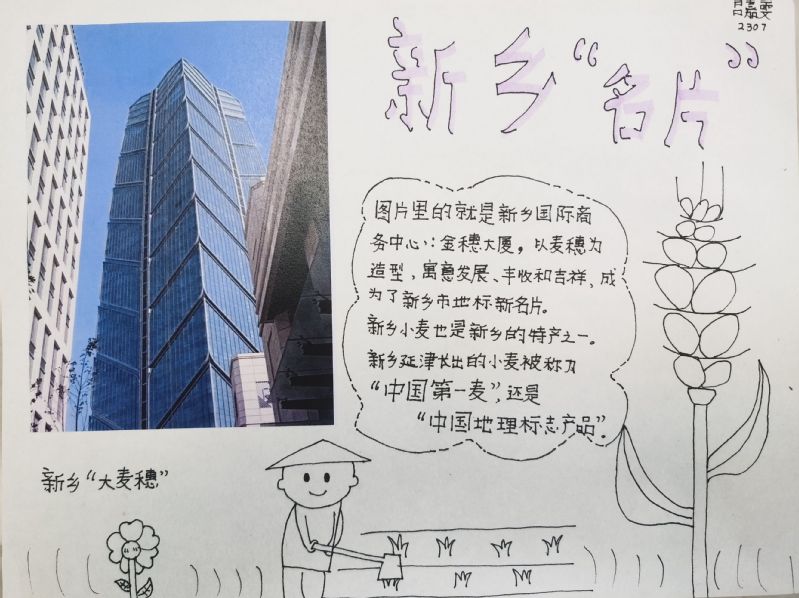 吕嘉雯
2307
新乡“名片”
图片里的就是新乡国际商
务中心：金穗大厦，以麦穗为
造型，寓意发展、丰收和吉祥，成
为了新乡市地标新名片。
新乡小麦也是新乡的特产之一。
新乡延津长出的小麦被称为
“中国第一麦”，还是
“中国地理标志产品”。
新乡“大麦穗”